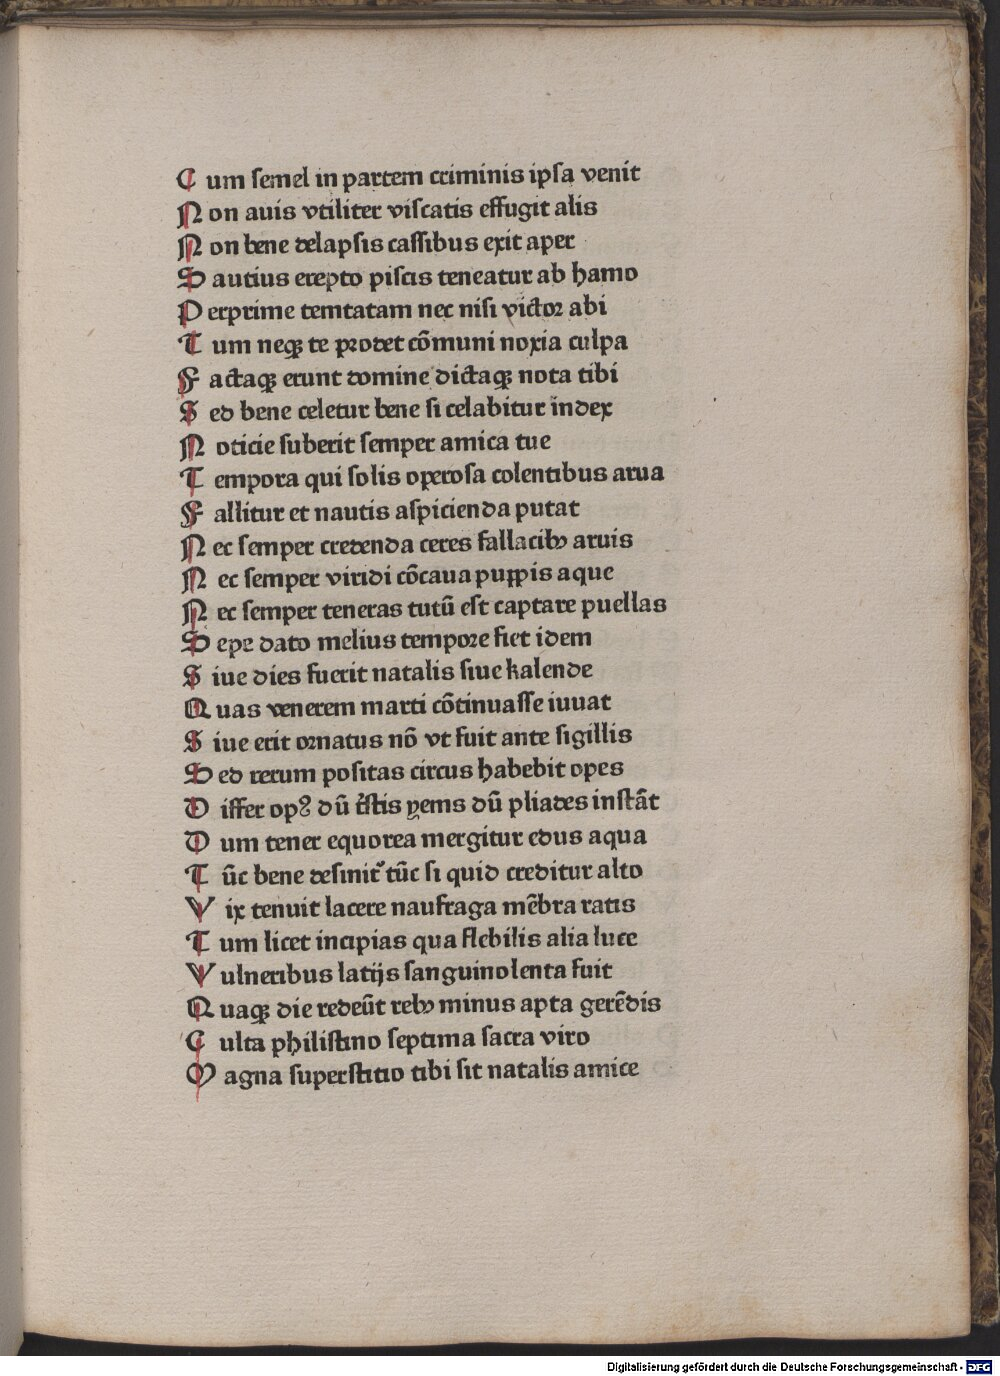 Cum semel in partem criminis ipsa venit
Non auis vtiliter viscatis effugit alis
Non bene delapsis cassibus exit aper
Sautius erepto piscis teneatur ab hamo
Perprime temtatam nec nisi victor abi
Tum neqꝫ te prodet cōmuni noxia culpa
Factaqꝫ erunt domine dictaqꝫ nota tibi
Sed bene celetur bene si celabitur index
Noticie suberit semper amica tue
Tempora qui solis operosa colentibus arua
Fallitur et nautis aspicienda putat
Nec semper credenda ceres fallacibꝫ aruis
Nec semper viridi cōcaua puppis aque
Nec semper teneras tutū est captare puellas
Sepe dato melius tempore fiet idem
Siue dies fuerit natalis siue kalende
Quas venerem marti cōtinuasse iuuat
Siue erit ornatus nō vt fuit ante sigillis
Sed rerum positas circus habebit opes
Differ opꝰ dū tristis yems dū pliades instāt
Dum tener equorea mergitur edus aqua
Tūc bene desinit᷑ tūc si quid creditur alto
Vix tenuit lacere naufraga mēbra ratis
Tum licet incipias qua flebilis alia luce
Vulneribus latijs sanguinolenta fuit
Quaqꝫ die redeūt rebꝫ minus apta gerēdis
Culta philistino septima sacra viro
Magna superstitio tibi sit natalis amice
Digitalisierung gefördert durch die Deutsche Forschungsgemeinschaft - DFG